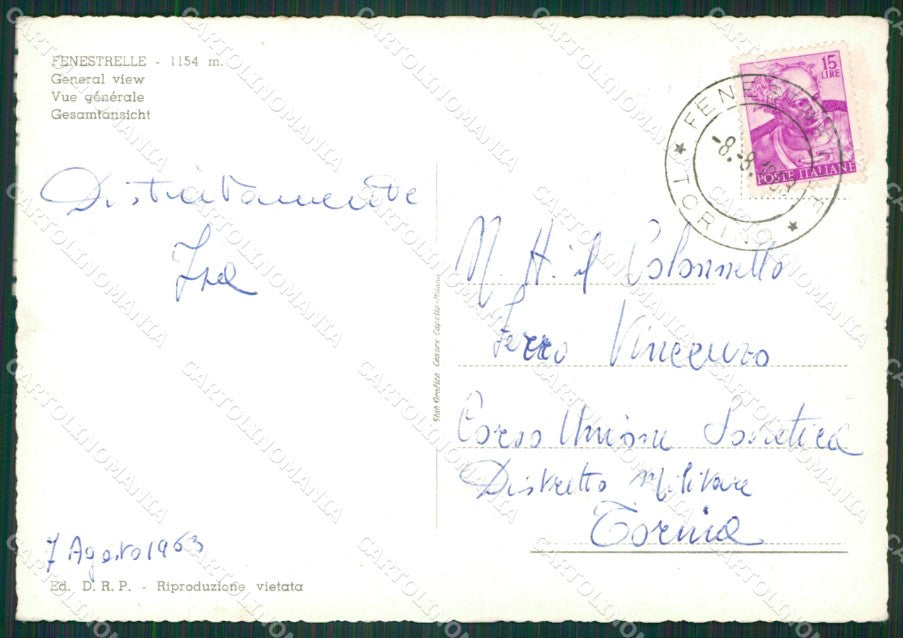 FENESTRELLE - 1154 m.
General view
Vue générale
Gesamtansicht
15
LIRE
POSTE ITALIANE
-8.-8.
TORINO
Distintamente
N. H. il Colonnello
Ferro Vincenzo
Corso Unione Sovietica
Distretto Militare
Torino
7 Agosto 1963
Ed. D. R. P. - Riproduzione vietata
Stab. Grafico Cesare Capello-Milano
CARTOLINOMANIA